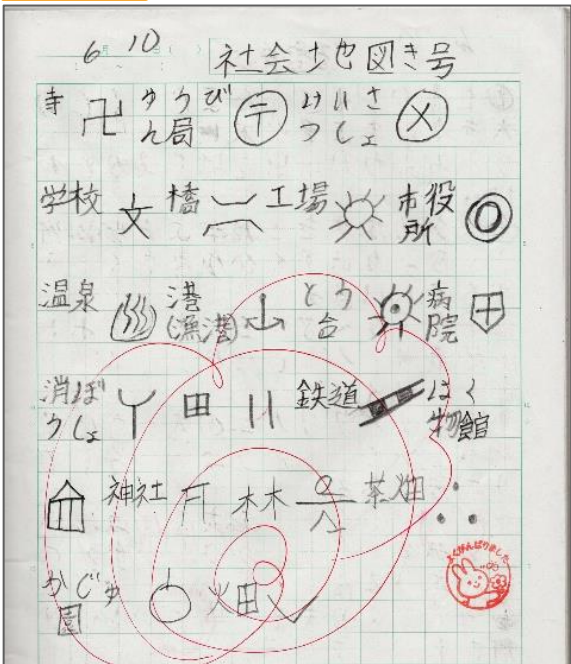 6月10日( )
社会 地図き号
寺 卍 ゆうびん局 〒 けいさつしょ
学校 文 橋 工場 市役所 ◎
温泉 港(漁港) とう台 病院
消ぼうしょ 田 鉄道 はく物館
神社 林 茶畑
かじゅ園 畑
よくがんばりました